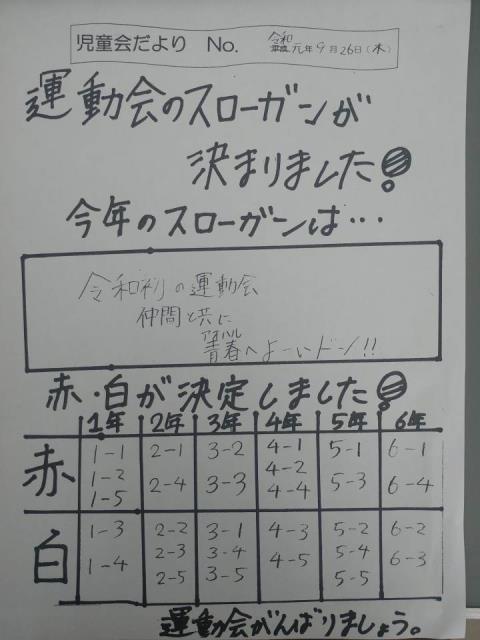 児童会だより No. 令和元年9月26日(木)
運動会のスローガンが
決まりました!
今年のスローガンは…
令和初の運動会
仲間と共に
アオハル
青春へよーいドン!!
赤・白が決定しました!
1年 2年 3年 4年 5年 6年
赤
1-1 2-1 3-2 4-1 5-1 6-1
1-2 2-4 3-3 4-2 5-3 6-4
1-5 4-4
白
1-3 2-2 3-1 4-3 5-2 6-2
1-4 2-3 3-4 4-5 5-4 6-3
2-5 3-5 5-5
運動会がんばりましょう。